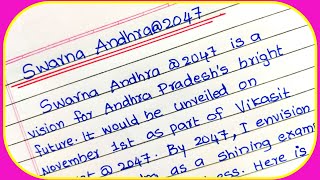 Swarna Andhra@2047
Swarna Andhra @2047 is a
vision for Andhra Pradesh's bright
future. It would be unveiled on
November 1st as part of Vikasit
@ 2047. By 2047, I envision
as a shining exam
Here is